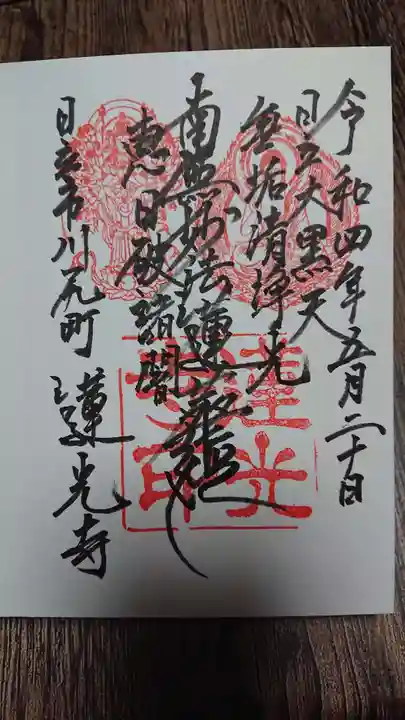 令和四年五月二十日
日立大黒天
無垢清浄光
南無妙法蓮華経
恵日破諸闇
日立市川尻町 蓮光寺
蓮光